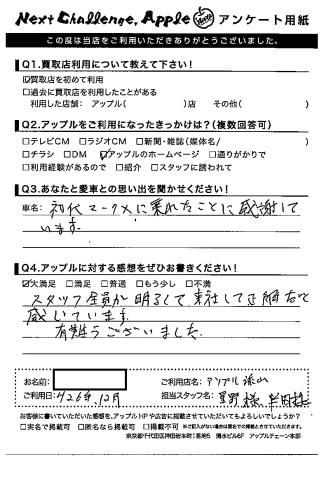 Next Challenge, Apple アンケート用紙
この度は当店をご利用いただきありがとうございました。
Q1.買取店利用について教えて下さい!
☑買取店を初めて利用
□過去に買取店を利用したことがある
利用した店舗: アップル( )店 その他( )
Q2.アップルをご利用になったきっかけは?(複数回答可)
□テレビCM □ラジオCM □新聞・雑誌(媒体名/ )
□チラシ □DM ☑アップルのホームページ □通りがかりで
□利用経験があるので □紹介 □スタッフに誘われて
Q3.あなたと愛車との思い出を聞かせください!
車名: 初代マークXに乗れたことに感謝して
います。
Q4.アップルに対する感想をぜひお書きください!
☑大満足 □満足 □普通 □もう少し □不満
スタッフ全員が明るくて来社して正解だと
感じています。
有難うございました。
お名前:
ご利用店名: アップル
ご利用日: H26年.12月
担当スタッフ名: 星野様
お客様に書いていただいた感想を、アップルHPや広告に掲載させていただいてもよろしいでしょうか?
□実名で掲載可 □匿名なら掲載可 □掲載不可 ※ご記入がない場合は匿名での掲載とさせていただきます。
東京都千代田区神田岩本町1番地5 清水ビル6F アップルチェーン本部